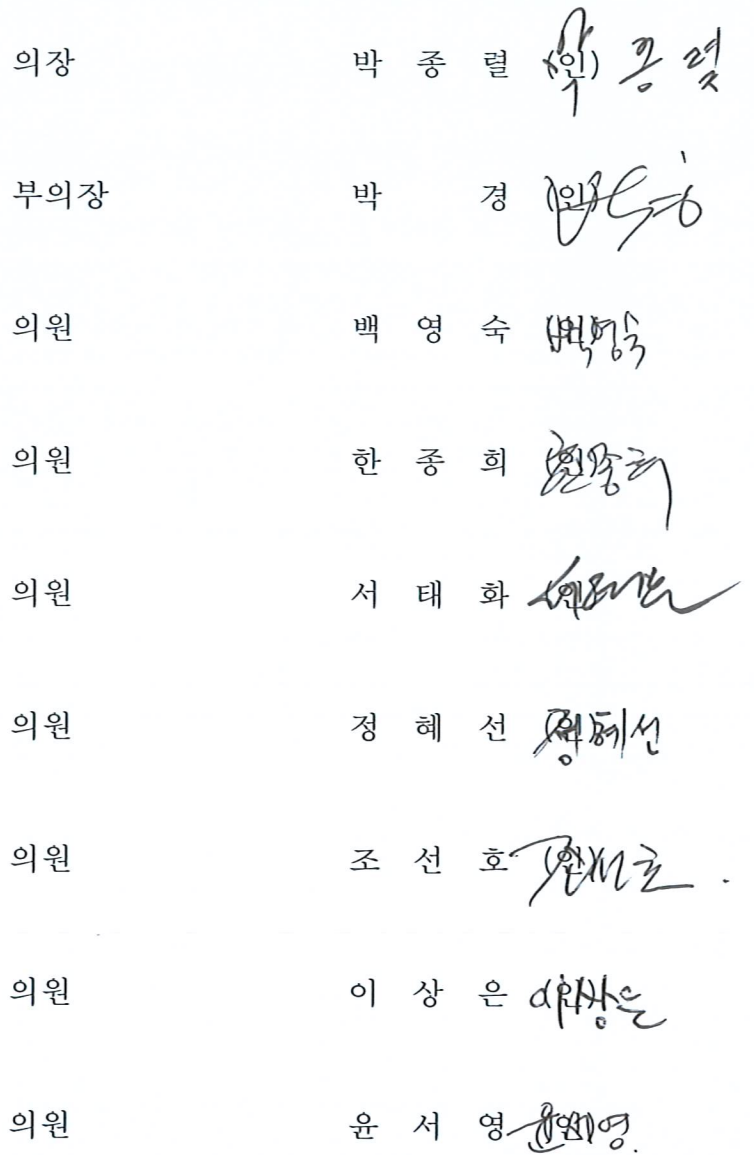 의장 박 종 렬 (인) 박종렬
부의장 박 경 (인)
의원 백 영 숙 (인) 백영숙
의원 한 종 희 (인) 한종희
의원 서 태 화 (인)
의원 정 혜 선 (인) 정혜선
의원 조 선 호 (인)
의원 이 상 은 (인) 이상은
의원 윤 서 영 (인) 윤서영